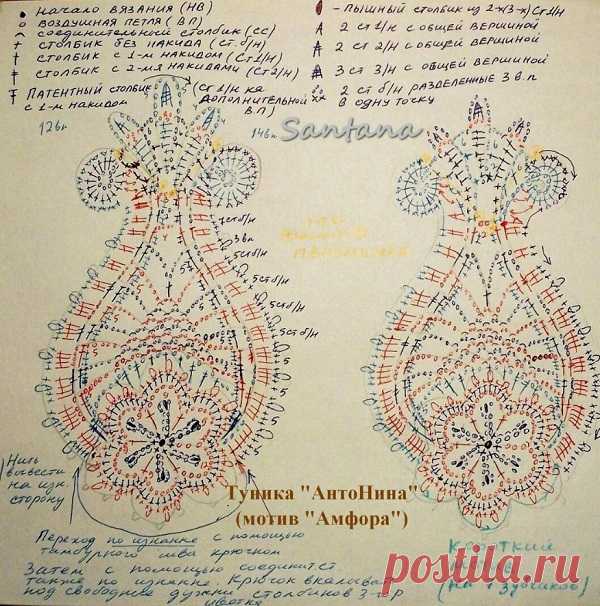 • Начало вязания (НВ)
о воздушная петля (ВП)
⌒ соединительный столбик (СС)
+ столбик без накида (Ст.б/н)
столбик с 1-м накидом (Ст1/н)
столбик с 2-мя накидами (Ст2/н)
Патентный столбик (Ст1/н на
с 1-м накидом дополнительной
ВП)
- пышный столбик из 2-х(3-х)Ст1/н
2 Ст1/н с общей вершиной
2 ст 2/н с общей вершиной
3 ст 3/н с общей вершиной
2 ст б/н разделенные 3 в.п
в одну точку
12вп
14вп
Santana
7стб/н
3вп
5стб/н
5стб/н
5стб/н
5
5
5
Нить
вывести
на изн.
сторону
Туника "АнтоНина"
(мотив "Амфора")
Переход по изнанке с помощью
тамбурного шва крючком
Затем с помощью соединит.
также по изнанке. Крючок вкалывать
под свободные дужки столбиков 3-р
цветка
Короткий
(на зубчиков)
postila.ru